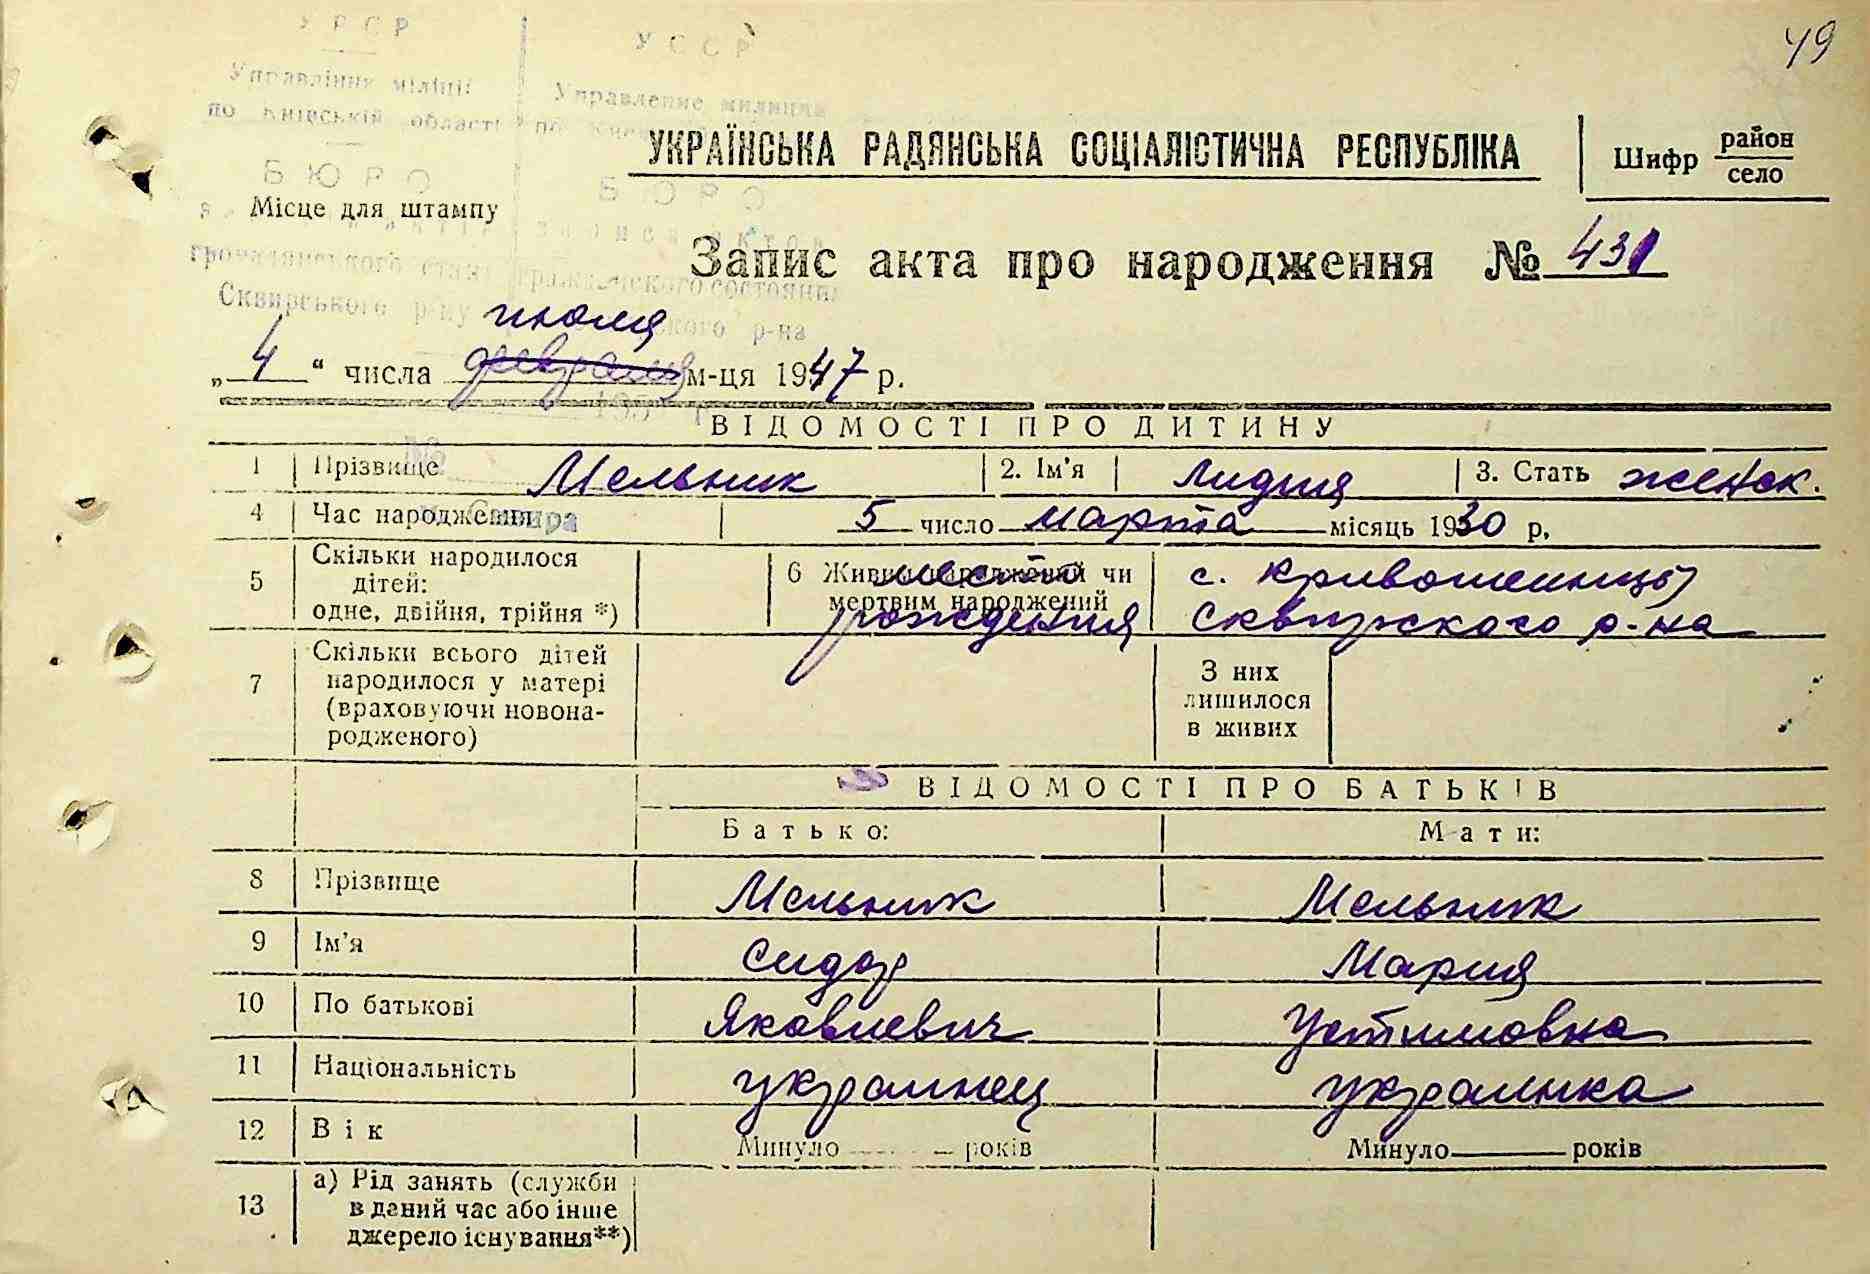 49
УРСР
УССР
Управління міліції
по Київській області
Управление милиции
БЮРО
БЮРО
УКРАЇНСЬКА РАДЯНСЬКА СОЦІАЛІСТИЧНА РЕСПУБЛІКА
Шифр район
село
Місце для штампу
Запис акта про народження № 431
громадянського стану гражданского состояния
Сквирського р-ну р-на
июля
„4“ числа февраля м-ця 1947 р.
ВІДОМОСТІ ПРО ДИТИНУ
1 Прізвище Мельник 2. Ім'я Лидия 3. Стать женск.
4 Час народження 5 число марта місяць 1930 р.
5 Скільки народилося дітей: одне, двійня, трійня *)
6 Живим народжений чи мертвим народжений
место рождения
с. Кривошеинцы
Сквирского р-на
7 Скільки всього дітей народилося у матері (враховуючи новонародженого)
З них лишилося в живих
ВІДОМОСТІ ПРО БАТЬКІВ
Батько: Мати:
8 Прізвище Мельник Мельник
9 Ім'я Сидор Мария
10 По батькові Яковлевич Устимовна
11 Національність украинец украинка
12 Вік Минуло років Минуло років
13 а) Рід занять (служби
в даний час або інше
джерело існування**)